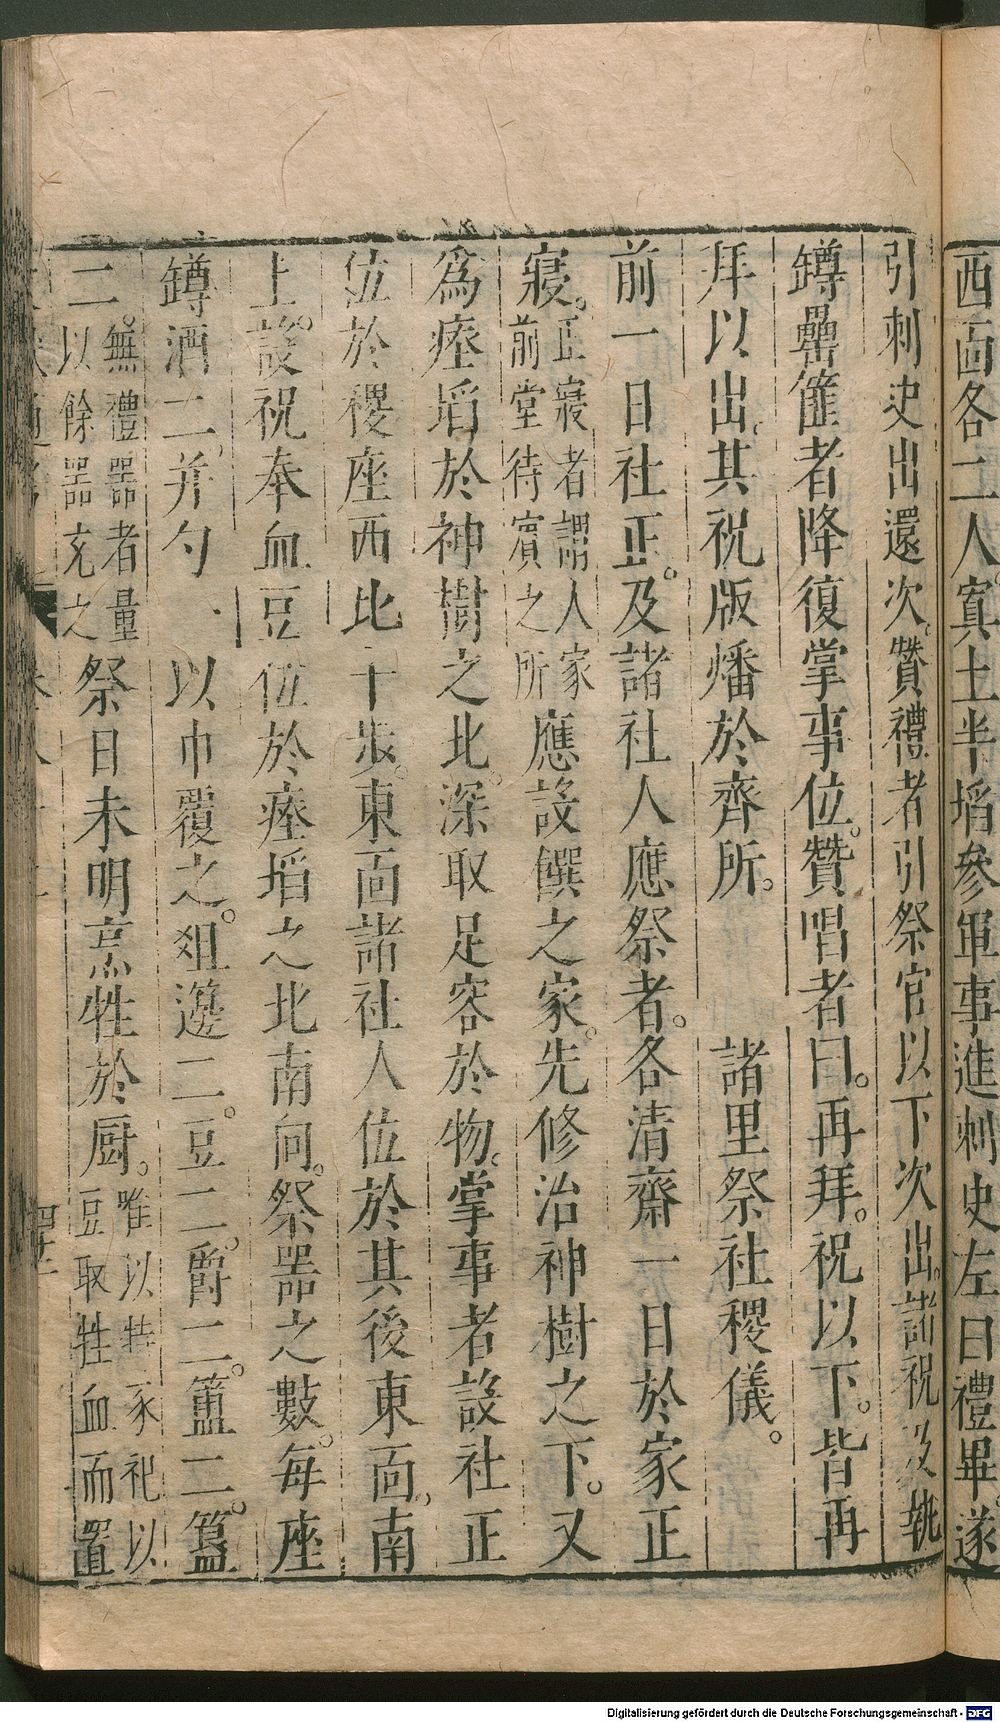 西面各二人寘土半埳參軍事進刺史左曰禮畢遂
引刺史出還次贊禮者引祭官以下次出諸祝及執
鐏罍篚者降復掌事位贊唱者曰再拜祝以下皆再
拜以出其祝版燔於齊所 諸里祭社稷儀
前一日社正及諸社人應祭者各清齋一日於家正
寢正寢者謂人家前堂待賓之所應設饌之家先修治神樹之下又
為瘞埳於神樹之北深取足容於物掌事者設社正
位於稷座西北十步東面諸社人位於其後東面南
上設祝奉血豆位於瘞埳之北南向祭器之數每座
鐏酒二并勺一以巾覆之俎籩二豆二爵二簠二簋
二無禮器者量以餘器充之祭日未明烹牲於厨唯以特豕祀以豆取牲血而置
Digitalisierung gefördert durch die Deutsche Forschungsgemeinschaft - DFG